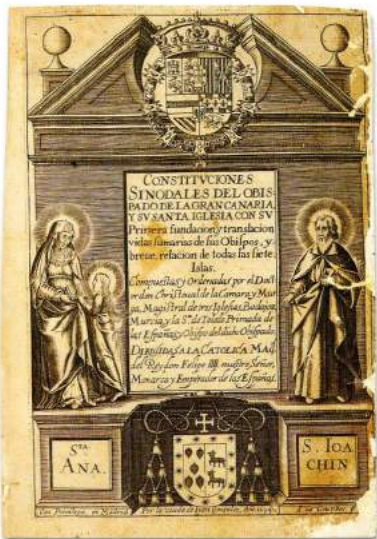 CONSTITVCIONES
SINODALES DEL OBIS-
PADO DE LA GRAN CANARIA,
Y SV SANTA IGLESIA CON SV
Primera fundacion y translacion
vidas sumarias de sus Obispos, y
breue, relacion de todas las siete
Islas.
Compuestas y Ordenadas por el Doct
or don Christoual de la Camara y Mur
ga, Magistral de tres Iglesias, Badajoz,
Murcia, y la Sta. de Toledo Primada de
las Españas, y Obispo del dicho Obispado.
DIRIGIDAS A LA CATOLICA MAG.
del Rey don Felipe IIII. nuestro Señor,
Monarca y Emperador de las Españas.
STA.
ANA.
S. IOA
CHIN
Con Privilegio, en Madrid Por la viuda de Iuan Gonçalez, Año